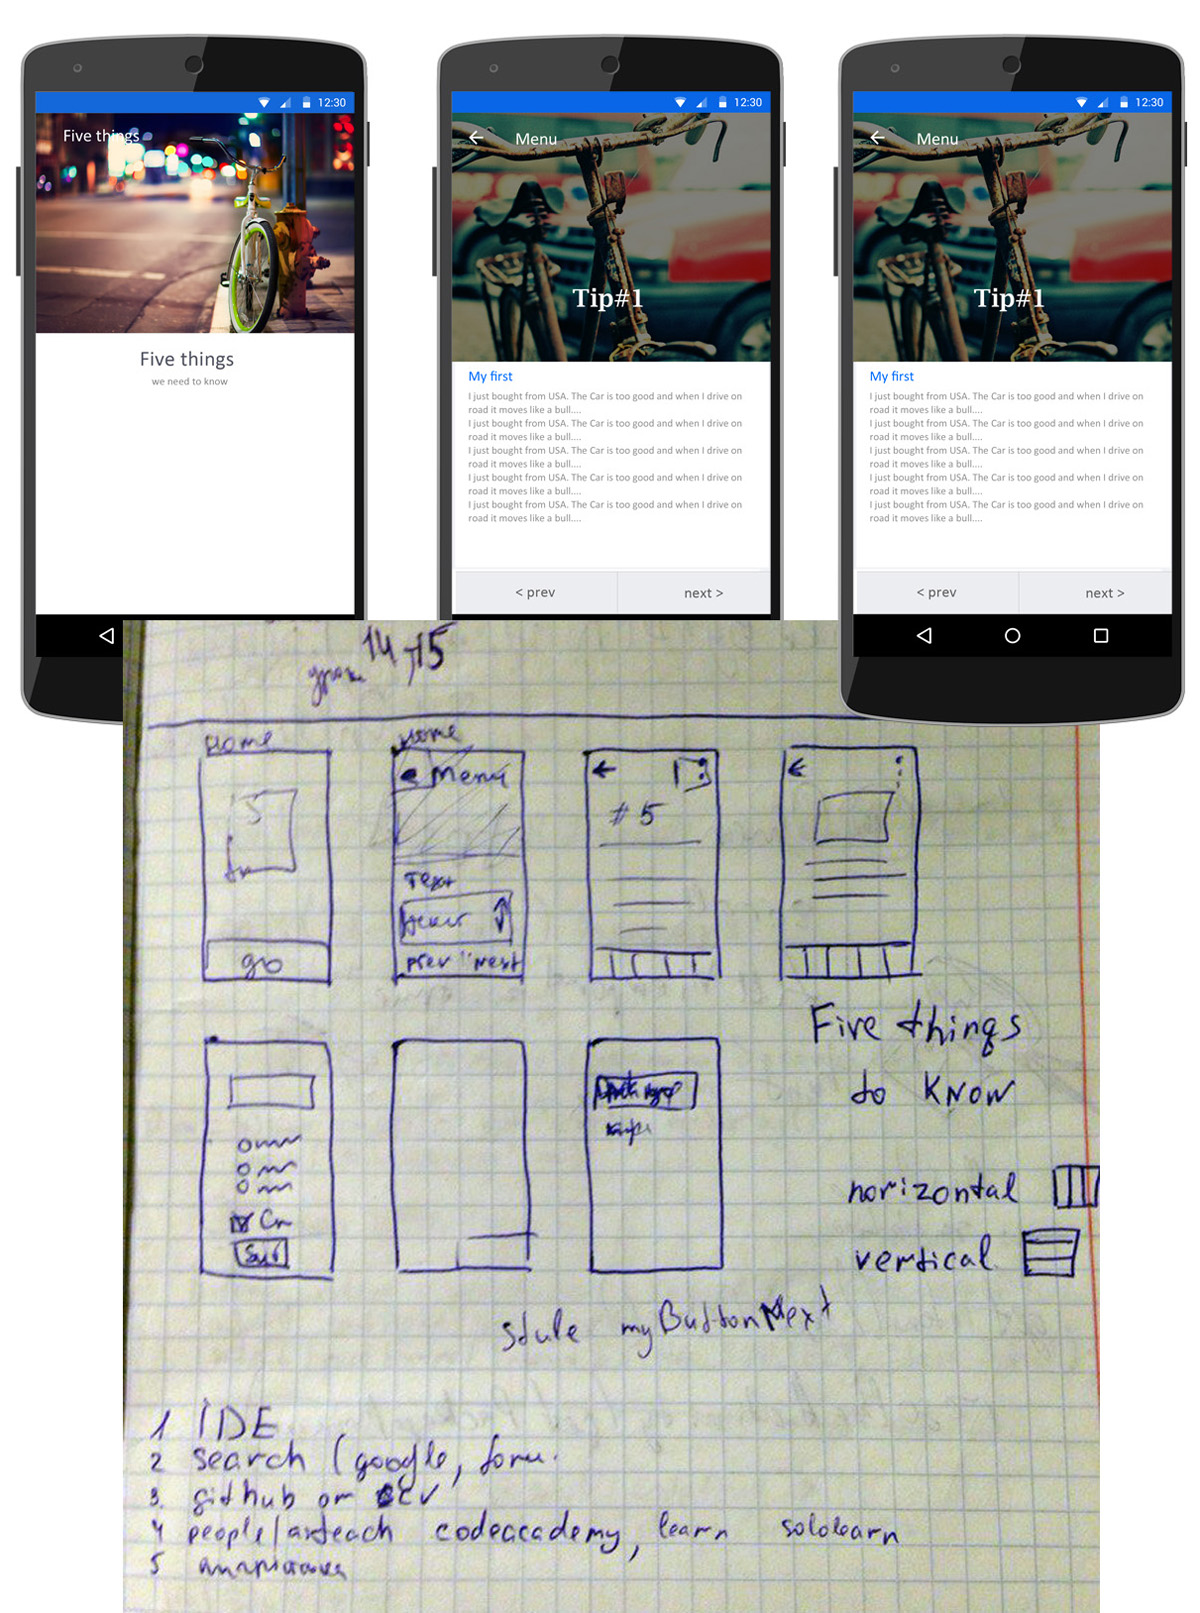 12:30
Five things
Five things
we need to know
12:30
Menu
Tip#1
My first
I just bought from USA. The Car is too good and when I drive on
road it moves like a bull....
I just bought from USA. The Car is too good and when I drive on
road it moves like a bull....
I just bought from USA. The Car is too good and when I drive on
road it moves like a bull....
I just bought from USA. The Car is too good and when I drive on
road it moves like a bull....
I just bought from USA. The Car is too good and when I drive on
road it moves like a bull....
< prev
next >
12:30
Menu
Tip#1
My first
I just bought from USA. The Car is too good and when I drive on
road it moves like a bull....
I just bought from USA. The Car is too good and when I drive on
road it moves like a bull....
I just bought from USA. The Car is too good and when I drive on
road it moves like a bull....
I just bought from USA. The Car is too good and when I drive on
road it moves like a bull....
I just bought from USA. The Car is too good and when I drive on
road it moves like a bull....
< prev
next >
14,15
Home
5
go
Home
Menu
Text
prev next
# 5
Five things
to know
horizontal
vertical
stule myButtonNext
1 IDE
2 search (google,
3. github or
4 people/ codeacademy, learn sololearn
5